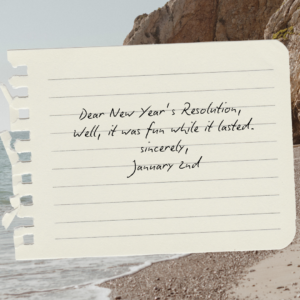 Dear New Year's Resolution,
Well, it was fun while it lasted.
sincerely,
January 2nd